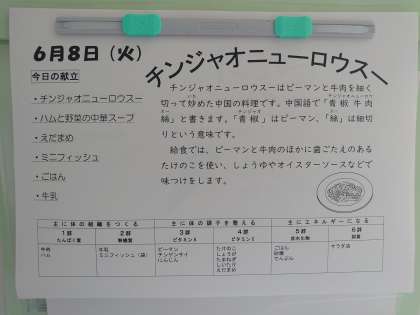 6月8日（火）
チンジャオニューロウスー
今日の献立
・チンジャオニューロウスー
・ハムと野菜の中華スープ
・えだまめ
・ミニフィッシュ
・ごはん
・牛乳
チンジャオニューロウスーはピーマンと牛肉を細く
切って炒めた中国の料理です。中国語で「青椒牛肉
絲」と書きます。「青椒」はピーマン、「絲」は細切
りという意味です。
給食では、ピーマンと牛肉のほかに歯ごたえのある
たけのこを使い、しょうゆやオイスターソースなどで
味つけをします。
主に体の組織をつくる 主に体の調子を整える 主にエネルギーになる
1群 2群 3群 4群 5群 6群
たんぱく質 無機質 ビタミンA ビタミンC 炭水化物 脂質
牛肉 牛乳 ピーマン たけのこ ごはん サラダ油
ハム ミニフィッシュ（袋） チンゲンサイ しょうが 砂糖
にんじん たまねぎ でんぷん
しいたけ
えだまめ